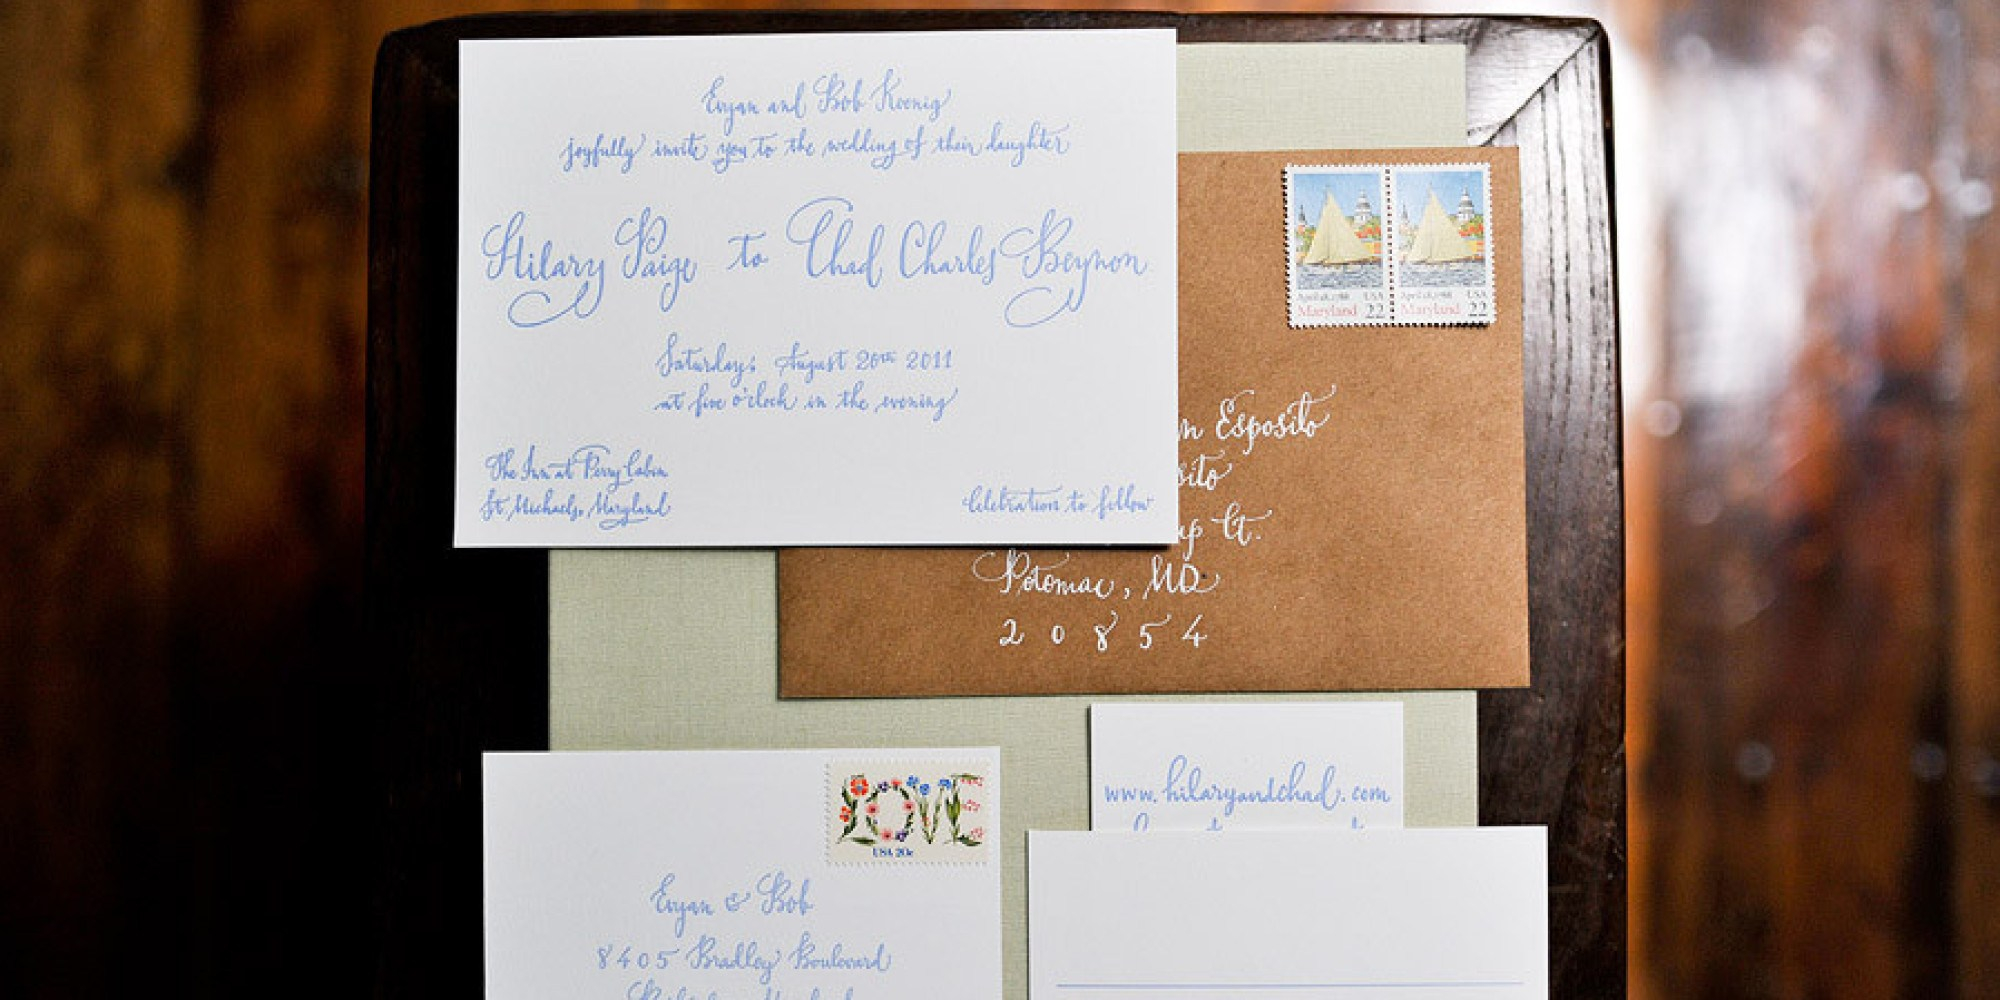 Evyan and Bob Koenig
joyfully invite you to the wedding of their daughter
Hilary Paige to Chad Charles Beynon
Saturday, August 20th 2011
at five o'clock in the evening
The Inn at Perry Cabin
St. Michaels, Maryland
Celebration to follow
April 28, 1788 USA
Maryland 22
April 28, 1788 USA
Maryland 22
Esposito
Ct.
Potomac, MD
20854
LOVE
USA 20c
Evyan & Bob
8405 Bradley Boulevard
www.hilaryandchad.com